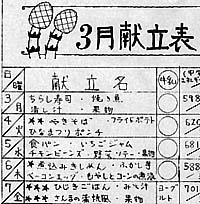 3月献立表
日 曜 献立名 牛乳
3 月 ちらし寿司・焼き魚 598
すまし汁・果物
4 火 ✳✳やきそば・フライドポテト 620
ひなまつりポンチ
5 水 食パン・いちごジャム 681
チキンビーンズ・野菜ソテー・果物
6 木 ✳煮込みきしめん・ふかしき 588
ベーコンエッグ・もやしとコーンの煮浸
7 金 ✳✳✳ひじきごはん・みそ汁 ヨーグルト 701
さんまの蒲焼風・果物